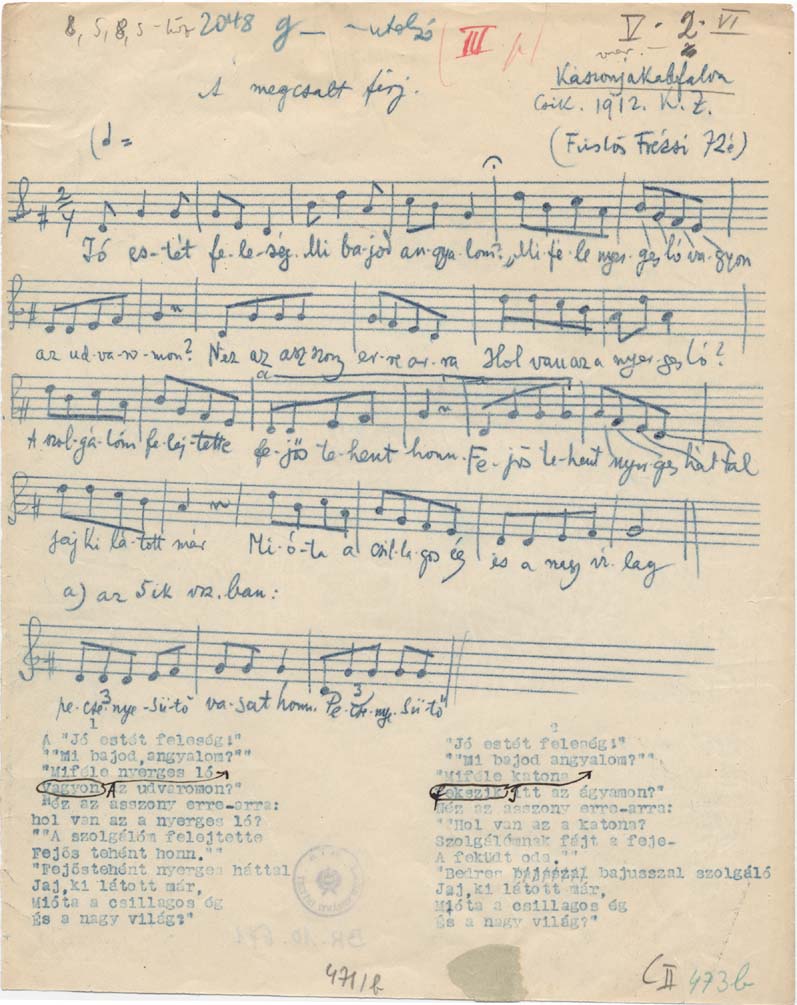 8, 5, 8, 5 2048 g — utolsó III. V. 2. VI
A megcsalt férj. Kászonjakabfalva
Csik. 1912. K. Z.
(Füstös Frézsi 72é)
Jó es-tét fe-le-ség. Mi ba-jod an-gya-lom? „Mi-fé-le nyer-ges ló va-gyon
az ud-va-ro-mon? Néz az asszony er-re ar-ra Hol van az a nyer-ges ló?
a
A szol-gá-lóm fe-lej-tette fe-jős te-hent honn. Fe-jős te-hent nyer-ges hát-tal
Jaj ki lá-tott már Mi-ó-ta a csil-la-gos ég és a nagy vi-lág
a) az 5ik vsz. ban:
pe-cse-nye-sü-tő va-sat honn. Pe-cse-nye sü-tő
3 3
1
A "Jó estét feleség!"
""Mi bajod,angyalom?""
"Miféle nyerges ló
Vagyon Az udvaromon?"
Néz az asszony erre-arra:
hol van az a nyerges ló?
""A szolgálóm felejtette
Fejős tehént honn.""
"Fejőstehént nyerges háttal
Jaj,ki látott már,
Mióta a csillagos ég
És a nagy világ?"
2
"Jó estét feleség!"
""Mi bajod angyalom?""
"Miféle katona
Fekszik itt az ágyamon?"
Néz az asszony erre-arra:
""Hol van az a katona?
Szolgálómnak fájt a feje-
A feküdt oda.""
"Bedres bajusszal szolgáló
Jaj,ki látott már,
Mióta a csillagos ég
És a nagy világ?"
471/b
II 473b